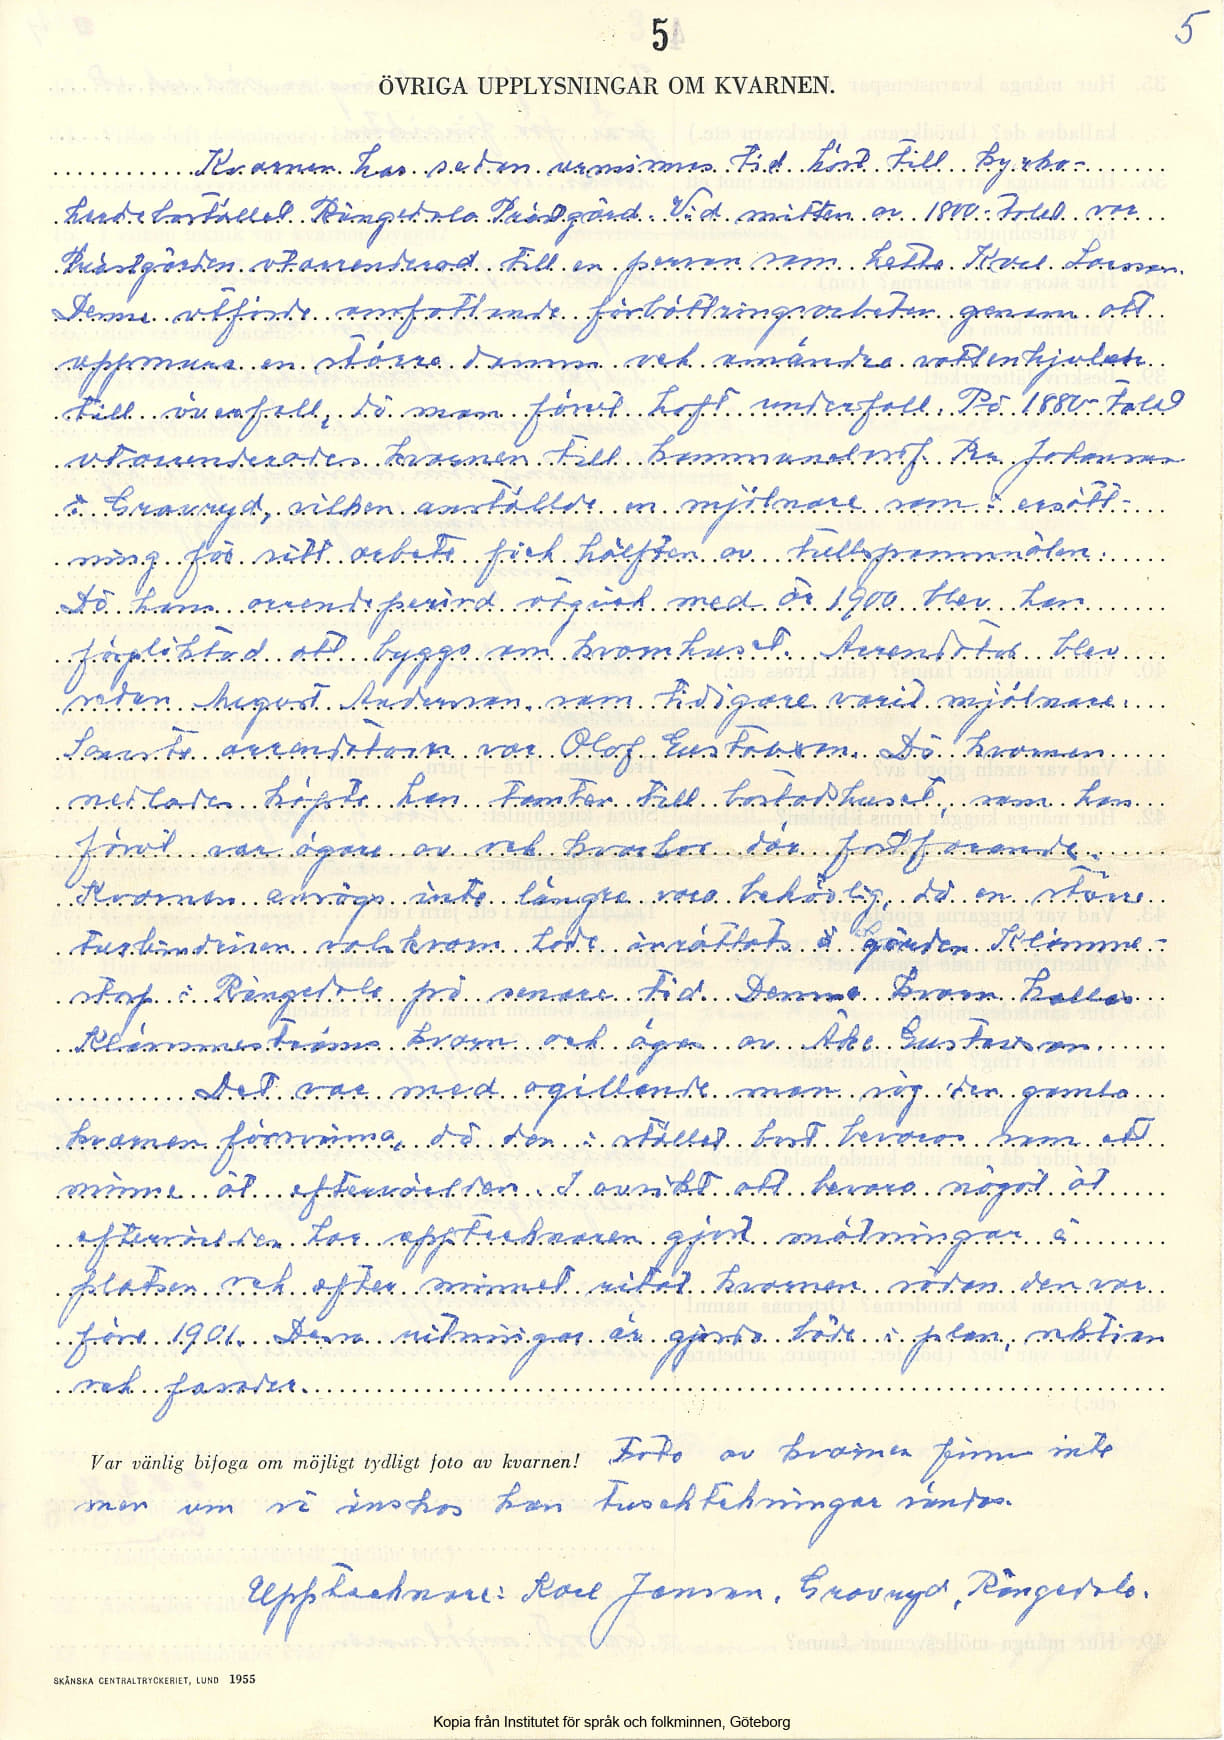 5
5
ÖVRIGA UPPLYSNINGAR OM KVARNEN.
Kvarnen har sedan urminnes tid hört till kyrko-
herdebostället Rångedala Prästgård. Vid mitten av 1800-talet var
Prästgården utarrenderad till en person som hette Karl Larsson.
Denne utförde omfattande förbättringsarbeten genom att
uppmura en större damm och omändra vattenhjulen
till överfall, då man förut haft underfall. På 1880-talet
utarrenderades kvarnen till kommunalordf. Johansson
i Gravryd, vilken anställde en mjölnare som i ersätt-
ning för sitt arbete fick hälften av tullspannmålen.
Då hans arrendeperiod utgick med år 1900 blev han
förpliktad att bygga om kvarnhuset. Arrendator blev
sedan August Andersson, som tidigare varit mjölnare.
Senaste arrendatorn var Olof Gustavsson. Då kvarnen
nedlades köpte han tomten till bostadshuset, som han
förut var ägare av och kvarbor där fortfarande.
Kvarnen ansågs inte längre vara behövlig, då en större
turbindriven valskvarn hade inrättats å gården Klämme-
storp i Rångedala på senare tid. Denna kvarn kallas
Klämmestorps kvarn och äges av Åke Gustavsson.
Det var med ogillande man såg den gamla
kvarnen försvinna, då den i stället bort bevaras som ett
minne åt eftervärlden. I avsikt att bevara något åt
eftervärlden har upptecknaren gjort mätningar å
platsen och efter minnet ritat kvarnen sådan den var
före 1901. Dessa ritningar är gjorda både i plan, sektion
och fasader.
Var vänlig bifoga om möjligt tydligt foto av kvarnen! Foto av kvarnen finns inte
men om så önskas kan tuschteckningar sändas.
Upptecknare: Karl Jonsson, Gravryd, Rångedala.
SKÅNSKA CENTRALTRYCKERIET, LUND 1955
Kopia från Institutet för språk och folkminnen, Göteborg